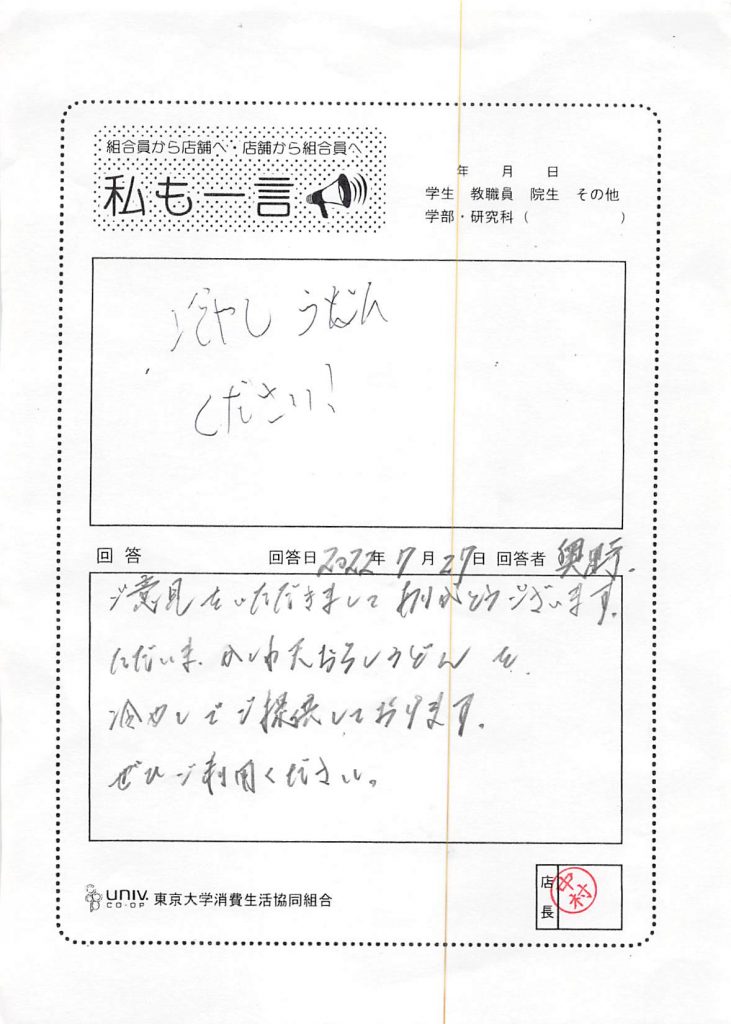 組合員から店舗へ・店舗から組合員へ
私も一言
年 月 日
学生 教職員 院生 その他
学部・研究科( )
冷やしうどん
ください!
回答 回答日 2022年 7月 27日 回答者 奥野.
ご意見をいただきましてありがとうございます。
ただいま、かしわ天おろしうどんを
冷やしでご提供しております。
ぜひご利用ください。
UNIV. CO-OP 東京大学消費生活協同組合
店長 中村